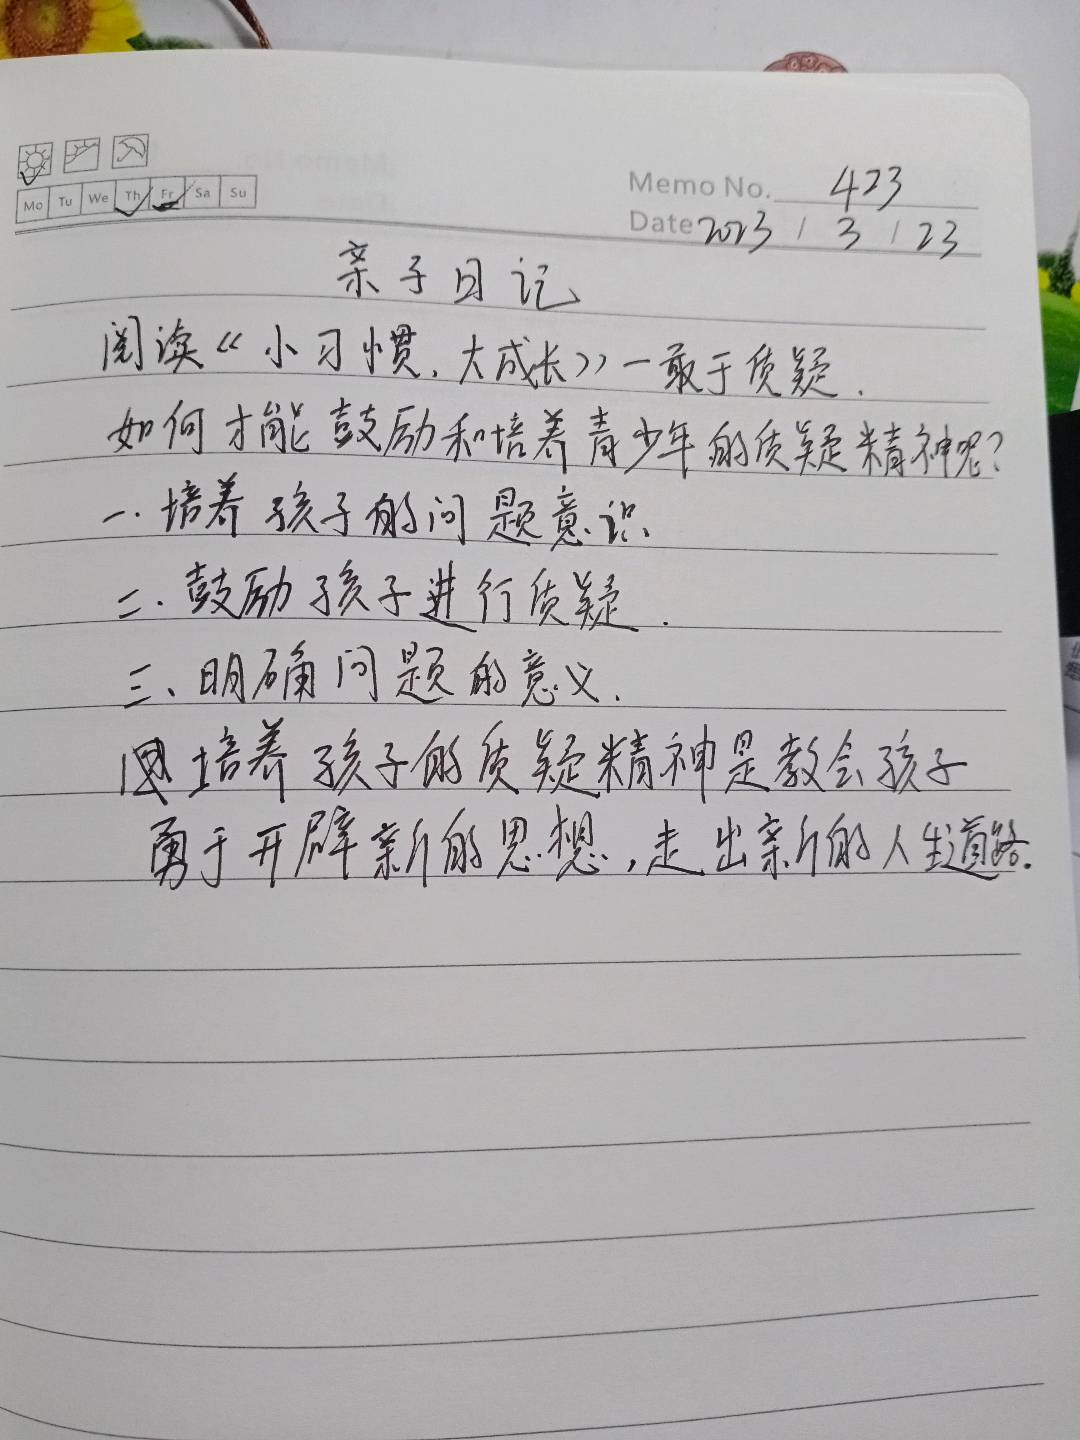 Mo Tu We Th Fr Sa Su
Memo No. 423
Date 2023 / 3 / 23
亲子日记
阅读《小习惯,大成长》一敢于质疑.
如何才能鼓励和培养青少年的质疑精神呢?
一.培养孩子的问题意识.
二.鼓励孩子进行质疑.
三、明确问题的意义.
培养孩子的质疑精神是教会孩子
勇于开辟新的思想,走出新的人生道路.